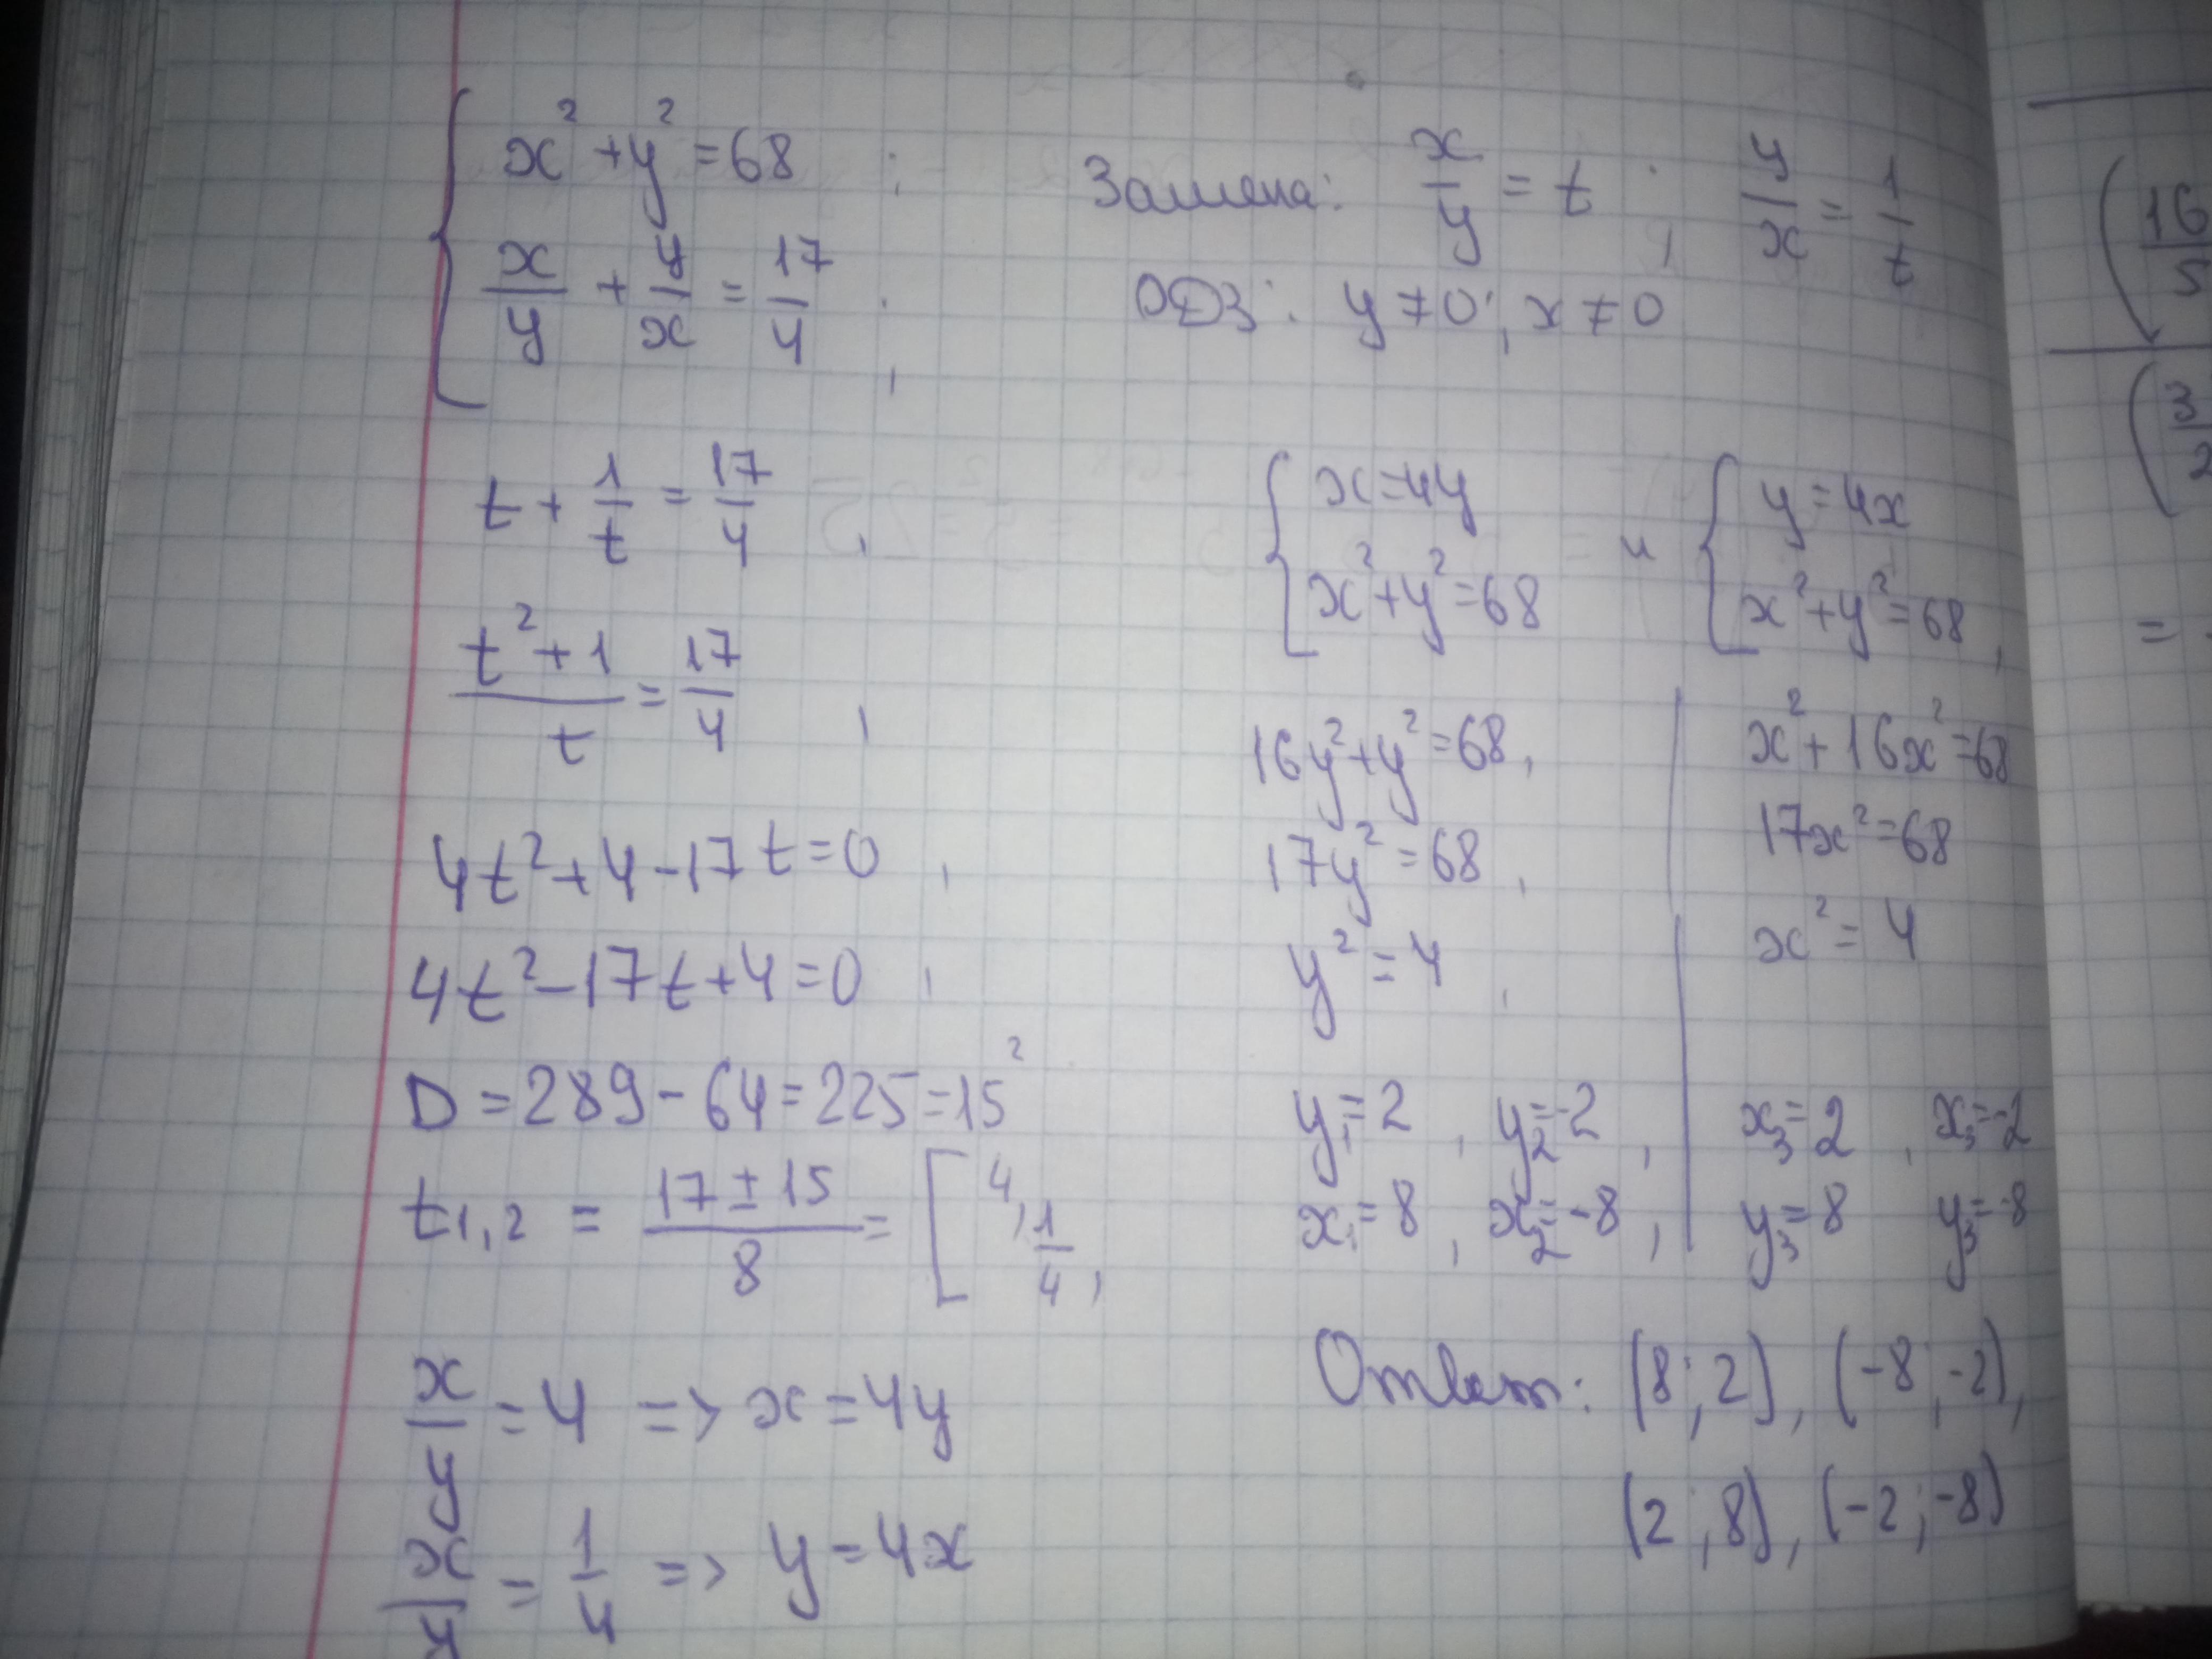 x² + y² = 68 ;
x/y + y/x = 17/4 ;
Замена: x/y = t ; y/x = 1/t
ОДЗ: y ≠ 0 ; x ≠ 0
t + 1/t = 17/4 ,
(t² + 1)/t = 17/4 ,
4t² + 4 - 17t = 0 ,
4t² - 17t + 4 = 0 ,
D = 289 - 64 = 225 = 15²
t1,2 = (17 ± 15)/8 = [ 4, 1/4 ,
x/y = 4 => x = 4y
x/y = 1/4 => y = 4x
{ x = 4y и { y = 4x
x² + y² = 68 x² + y² = 68 ,
16y² + y² = 68 ,
17y² = 68 ,
y² = 4 ,
y₁ = 2 , y₂ = -2 ,
x₁ = 8 , x₂ = -8 ,
x² + 16x² = 68
17x² = 68
x² = 4
x₃ = 2 , x₃ = -2
y₃ = 8 y₃ = -8
Ответ: (8 ; 2) , (-8 ; -2) ,
(2 ; 8) , (-2 ; -8)
16
5
3
2
=